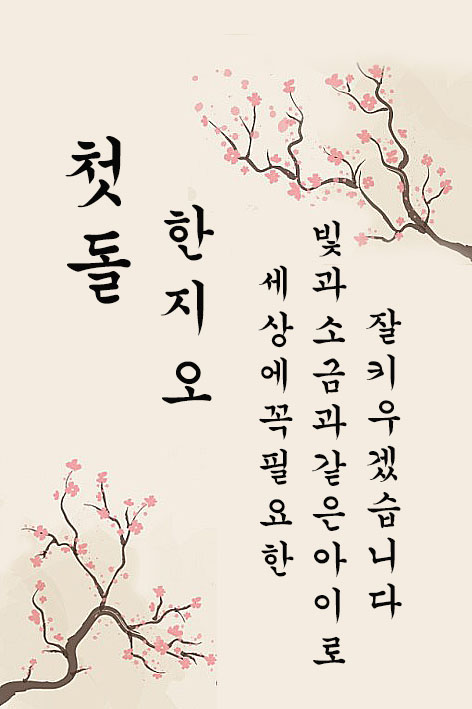 첫돌
한지오
세상에꼭필요한
빛과소금과같은아이로
잘키우겠습니다